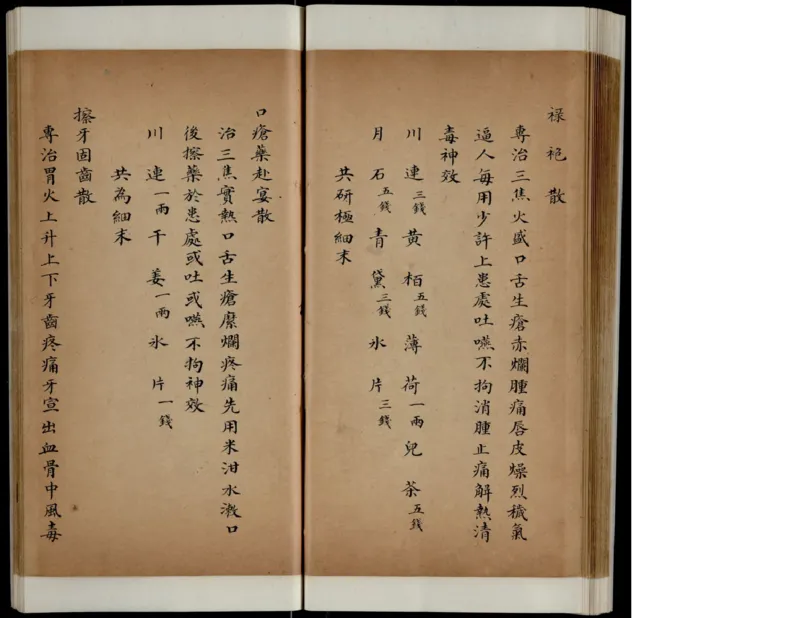 祿袍散
專治三焦火盛口舌生瘡赤爛腫痛唇皮燥烈穢氣
逼人每用少許上患處吐嚥不拘消腫止痛解熱清
毒神效
川連三錢黃栢五錢薄荷一兩兒茶五錢
月石五錢青黛三錢氷片三錢
共研極細末
口瘡藥赴宴散
治三焦實熱口舌生瘡糜爛疼痛先用米泔水潄口
後擦藥於患處或吐或嚥不拘神效
川連一兩干姜一兩氷片一錢
共為細末
擦牙固齒散
專治胃火上升上下牙齒疼痛牙宣出血骨中風毒